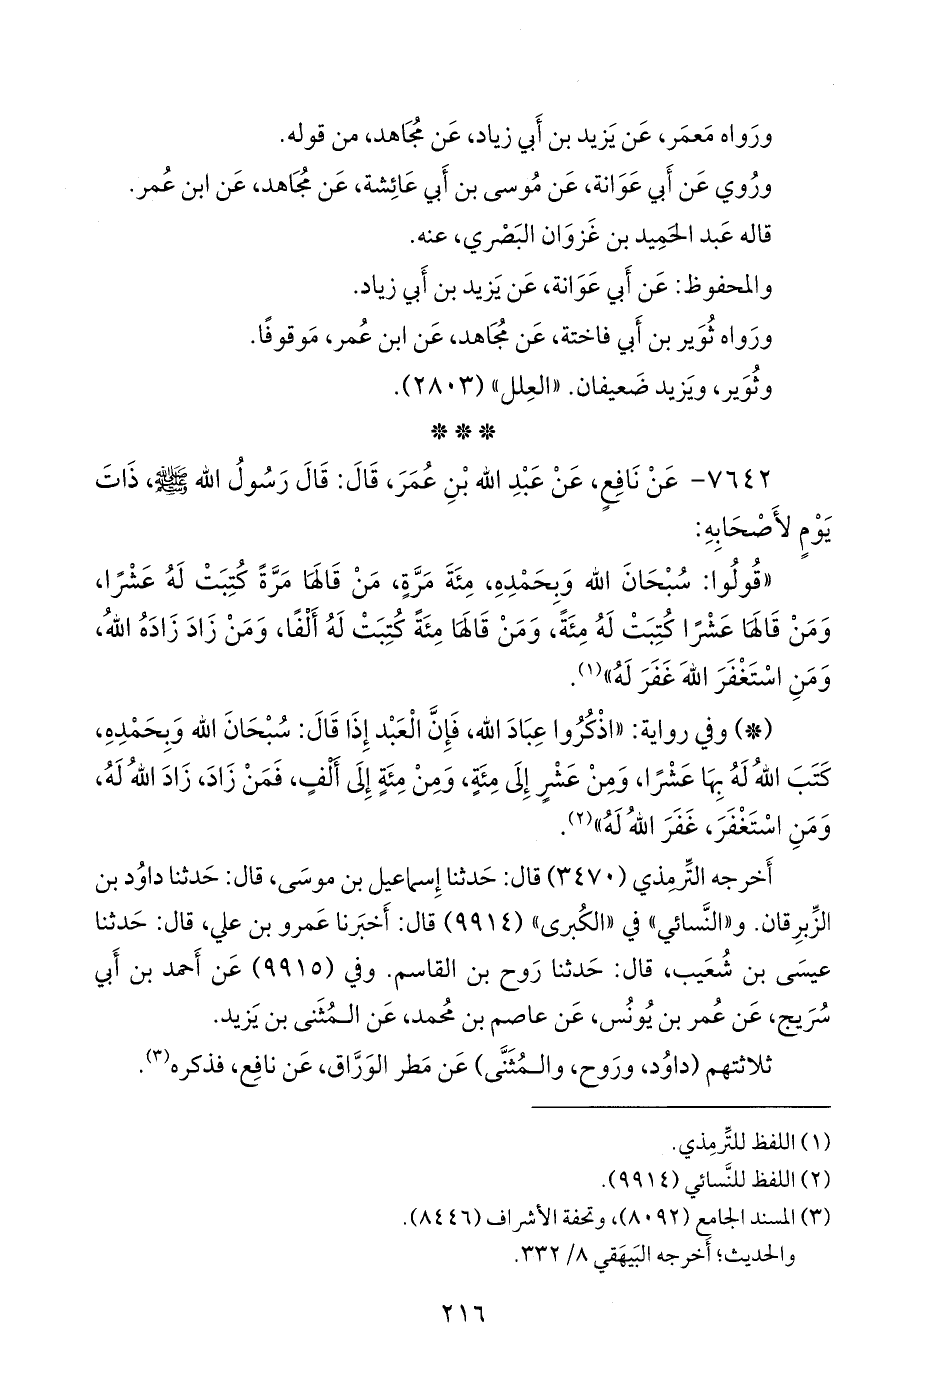 ورَواه مَعمَر، عَن يَزيد بن أَبي زياد، عَن مُجَاهد، من قوله.
ورُوي عَن أَبي عَوَانة، عَن مُوسى بن أَبي عَائِشة، عَن مُجَاهد، عَن ابن عُمر.
قاله عَبد الحَمِيد بن غَزوَان البَصْري، عنه.
والمحفوظ: عَن أَبي عَوَانة، عَن يَزيد بن أَبي زياد.
ورَواه ثُوَير بن أَبي فاختة، عَن مُجَاهد، عَن ابن عُمر، مَوقوفًا.
وثُوَير، ويَزيد ضَعيفان. «العِلل» (٢٨٠٣).
* * *
٧٦٤٢- عَنْ نَافِعٍ، عَنْ عَبْدِ الله بْنِ عُمَرَ، قَالَ: قَالَ رَسُولُ الله ﷺ، ذَاتَ
يَوْمٍ لأَصْحَابِهِ:
«قُولُوا: سُبْحَانَ الله وَبِحَمْدِهِ، مِئَةَ مَرَّةٍ، مَنْ قَالَهَا مَرَّةً كُتِبَتْ لَهُ عَشْرًا،
وَمَنْ قَالَهَا عَشْرًا كُتِبَتْ لَهُ مِئَةً، وَمَنْ قَالَهَا مِئَةً كُتِبَتْ لَهُ أَلْفًا، وَمَنْ زَادَ زَادَهُ اللهُ،
وَمَنِ اسْتَغْفَرَ اللهَ غَفَرَ لَهُ»(١).
(*) وفي رواية: «اذْكُرُوا عِبَادَ الله، فَإِنَّ الْعَبْد إِذَا قَالَ: سُبْحَانَ الله وَبِحَمْدِهِ،
كَتَبَ اللهُ لَهُ بِهَا عَشْرًا، وَمِنْ عَشْرٍ إِلَى مِئَةٍ، وَمِنْ مِئَةٍ إِلَى أَلْفٍ، فَمَنْ زَادَ، زَادَ اللهُ لَهُ،
وَمَنِ اسْتَغْفَرَ، غَفَرَ اللهُ لَهُ»(٢).
أَخرجه التِّرمِذي (٣٤٧٠) قال: حَدثنا إِسماعيل بن موسَى، قال: حَدثنا داوُد بن
الزِّبرِقان. و«النَّسائي» في «الكُبرى» (٩٩١٤) قال: أَخبَرنا عَمرو بن علي، قال: حَدثنا
عيسَى بن شُعَيب، قال: حَدثنا رَوح بن القاسم. وفي (٩٩١٥) عَن أَحمد بن أَبي
سُرَيج، عَن عُمر بن يُونُس، عَن عاصم بن محمد، عَن الـمُثَنى بن يَزيد.
ثلاثتهم (داوُد، ورَوح، والـمُثَنَّى) عَن مَطر الوَرَّاق، عَن نافِع، فذكره(٣).
(١) اللفظ للتِّرمِذي.
(٢) اللفظ للنَّسائي (٩٩١٤).
(٣) المسند الجامع (٨٠٩٢)، وتحفة الأشراف (٨٤٤٦).
والحديث؛ أَخرجه البَيهَقي ٨/ ٣٣٢.
٢١٦